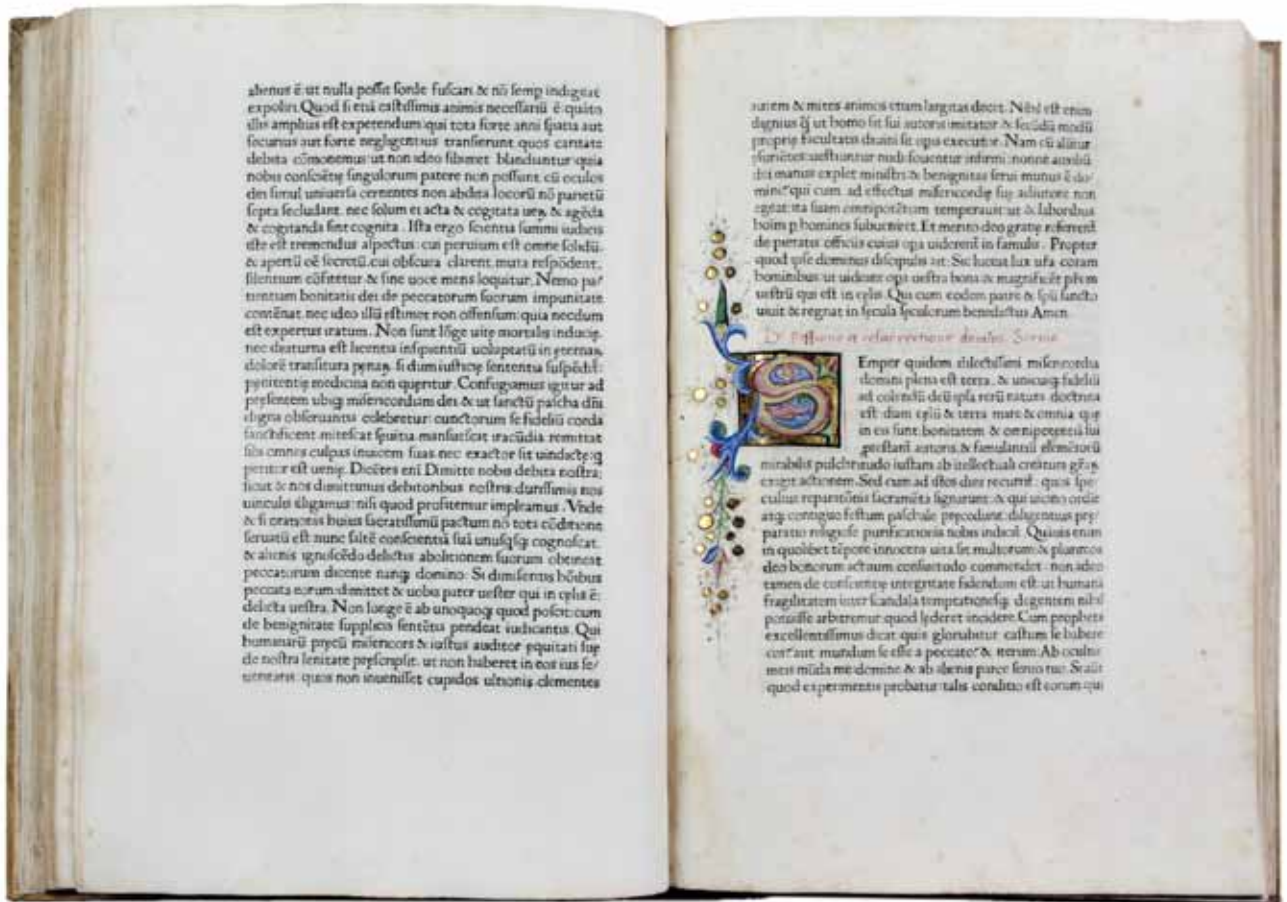 alienus ē: ut nulla possit sorde fuscari & nō semp indigeat
expoliri. Quod si etiā castissimis animis necessariū ē: quāto
illis amplius est expetendum: qui tota forte anni spatia aut
securius aut forte negligentius transierunt quos caritate
debita cōmonemus: ut non ideo sibimet blandiantur quia
nobis consciētię singulorum patere non possunt. cū oculos
dei simul uniuersa cernentes non abdita locorū nō parietū
septa secludant. nec solum ei acta & cogitata uerū & agēda
& cogitanda sint cognita. Ista ergo scientia summi iudicis
iste est tremendus aspectus: cui peruium est omne solidū.
& apertū oē secretū. cui obscura clarent. muta respōdent.
silentium cōfitetur & sine uoce mens loquitur. Nemo pa/
tientiam bonitatis dei de peccatorum suorum impunitate
contēnat. nec ideo illū estimet non offensum: quia necdum
est expertus iratum. Non sunt lōge uite mortalis inducię.
nec diuturna est licentia insipientiū uoluptatū in eternaꝝ
dolorē transitura pęnaꝝ. si dum iusticię sententia suspēdit:
pęnitentię medicina non queritur. Confugiamus igitur ad
pręsentem ubiqꝫ misericordiam dei & ut sanctū pascha dn̄i
digna obseruantia celebretur: cunctorum se fideliū corda
sanctificent. mitescat sęuitia. mansuescat iracūdia. remittat
sibi omnes culpas inuicem suas. nec exactor sit uindictę: q
petitor est uenię. Dicētes eni Dimitte nobis debita nostra:
sicut & nos dimittimus debitoribus nostris: durissimis nos
uinculis illigamus: nisi quod profitemur impleamus. Vnde
& si orationis huius sacratissimū pactum nō tota cōditione
seruatū est nunc saltē conscientiā suā unusqsqꝫ cognoscat.
& alienis ignoscēdo delictis abolitionem suorum obtineat
peccatorum dicente nanqꝫ domino: Si dimiseritis hōibus
peccata eorum dimittet & uobis pater uester qui in cęlis ē:
delicta uestra. Non longe ē ab unoquoqꝫ quod poscit: cum
de benignitate supplicis sentētia pendeat iudicantis. Qui
humanarū pręcū misericors & iustus auditor equitati suę
de nostra lenitate pręscripsit. ut non haberet in eos ius se/
ueritatis. quos non inuenisset cupidos ultionis. clementes
autem & mites animos etiam largitas decet. Nihil est enim
dignius q̄ ut homo sit sui autoris imitator & secūdū modū
proprię facultatis diuini sit opis executor. Nam cū aliūtur
esuriētes: uestiuntur nudi: fouentur infirmi: nonne auxiliū
dei manus explet ministri: & benignitas serui munus ē do/
mini: qui cum ad effectus misericordię suę adiutore non
egeat: ita suam omnipotētiam temperauit: ut & laboribus
hoim p homines subueniret. Et merito deo gratię referent̄
de pietatis officiis cuius opa uiderent̄ in famulis. Propter
quod ipse dominus discipulis ait: Sic luceat lux ura coram
hominibus: ut uideant opa uestra bona & magnificēt prem
uestrū qui est in cęlis. Qui cum eodem patre & spū sancto
uiuit & regnat in secula seculorum benedictus Amen
De passione et resurrectione domini. Sermo
SEmper quidem dilectissimi misericordia
domini plena est terra. & unicuiqꝫ fideliū
ad colendū deū ipsa rerū natura doctrina
est. dum cęlū & terra mare & omnia quę
in eis sunt: bonitatem & omnipotentiā sui
protestant̄ autoris. & famulantiū elemētorū
mirabilis pulchritudo iustam ab itellectuali creatura grāꝝ
exigit actionem. Sed cum ad istos dies recurrit̄: quos spe/
cialius reparatiōis sacramēta signarunt: & qui uicino ordie
atqꝫ contiguo festum paschale pręcedunt: diligentius pre/
paratio religiosę purificationis nobis indicit̄. Quāuis enim
in quolibet tēpore innocens uita sit multorum: & plurimos
deo bonorum actuum consuetudo commendet: non ideo
tamen de conscientię integritate fidendum est: ut humanā
fragilitatem inter scandala temptationesqꝫ degentem nihil
potuisse arbitremur quod lęderet incidere. Cum propheta
excellentissimus dicat quis gloriabitur castum se habere
cor: aut mundum se esse a peccato: & iterum: Ab occultis
meis mūda me domine & ab alienis parce seruo tuo. Si aūt
quod experimentis probatur: talis conditio est eorum qui